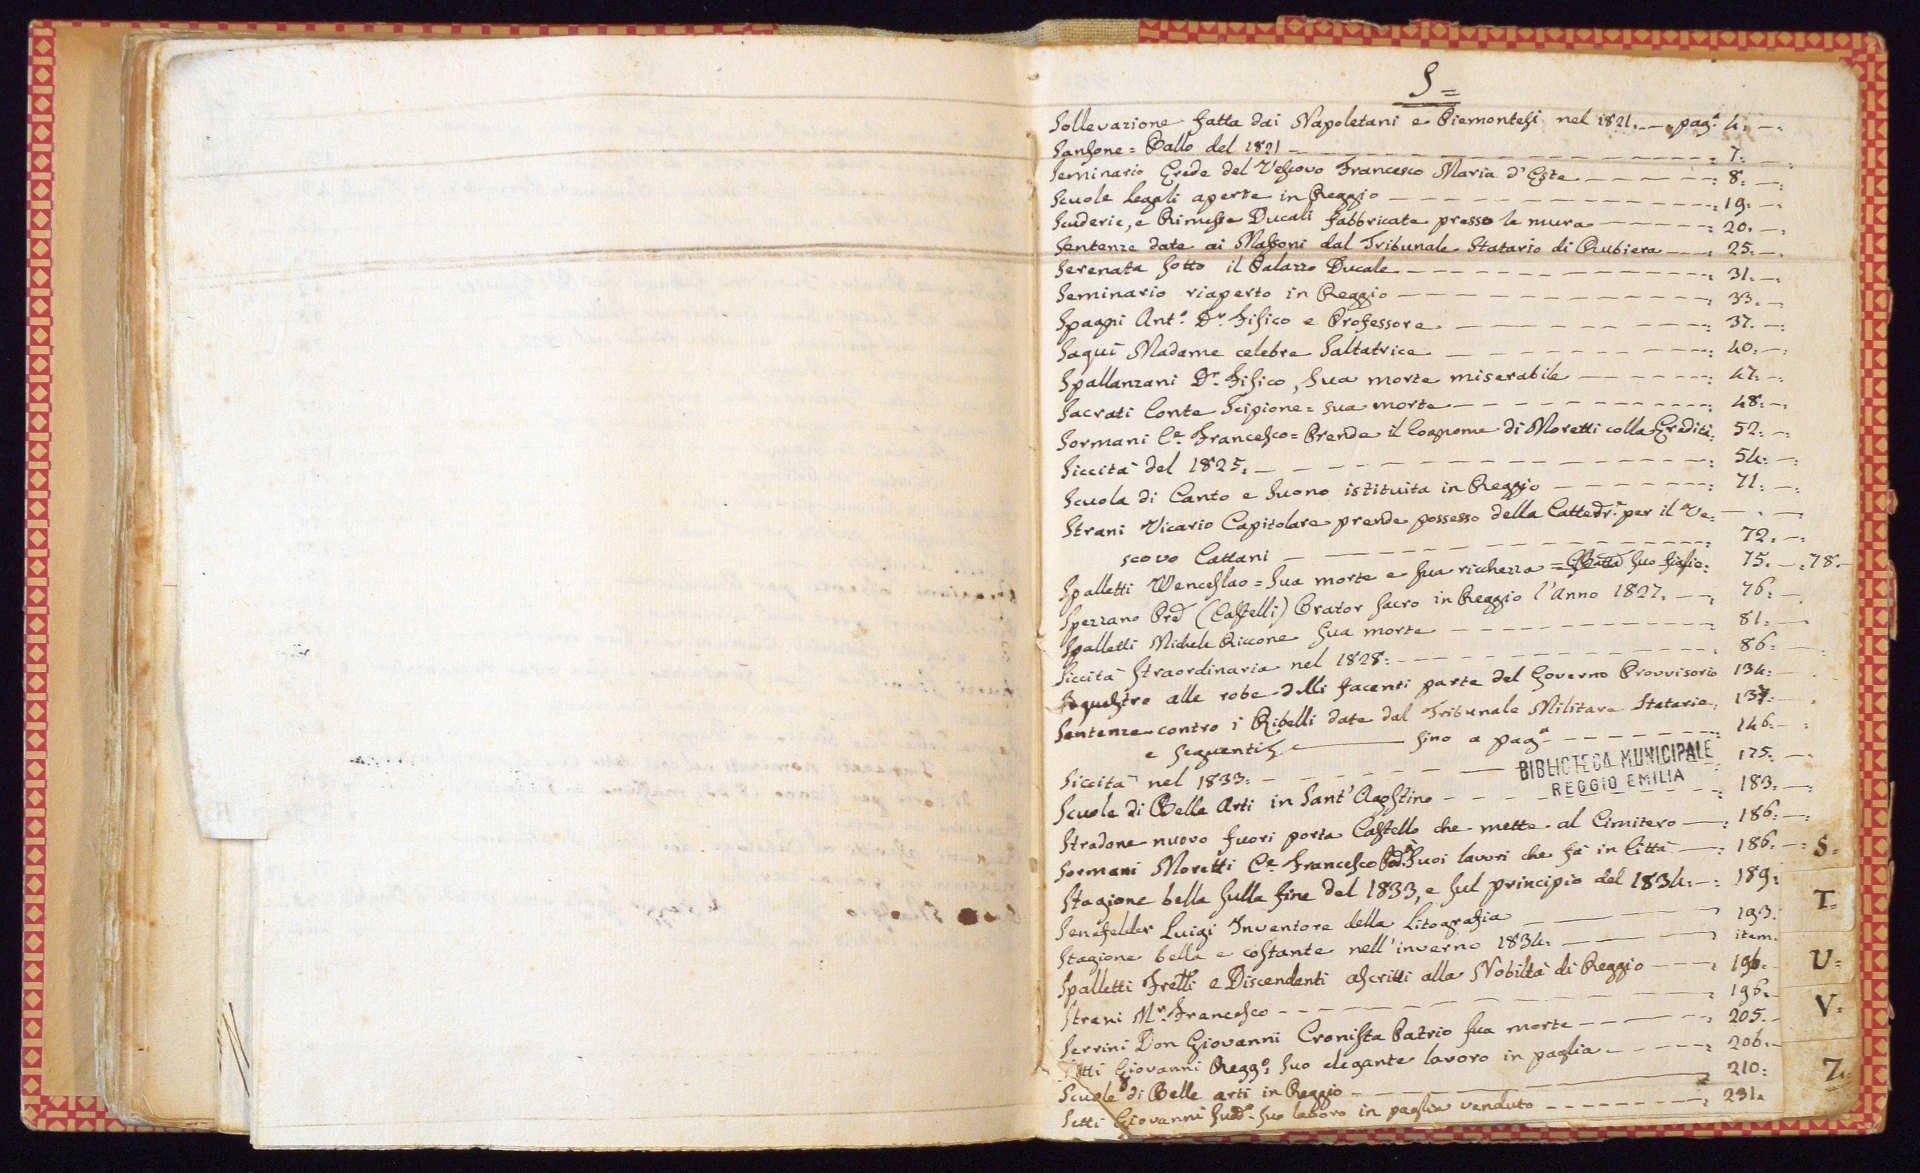 S=
Sollevazione fatta dai Napoletani e Piemontesi nel 1821. — pag.ª 4: —:
Sansone = Ballo del 1821 — : 7: —:
Seminario Erede del Vescovo Francesco Maria d'Este — : 8: —:
Scuole Legali aperte in Reggio — : 19: —:
Scuderie, e Rimesse Ducali fabbricate presso le mura — : 20. —:
Sentenze date ai Massoni dal Tribunale Statario di Rubiera — : 25: —:
Serenata sotto il Palazzo Ducale — : 31: —:
Seminario riaperto in Reggio — : 33. —:
Spagni Ant.º D.r Fisico e Professore — : 37. —:
Saqui Madame celebre Saltatrice — : 40: —:
Spallanzani D.r Fisico, sua morte miserabile — : 47: —:
Sacrati Conte Scipione = sua morte — : 48: —:
Sormani C.e Francesco = Prende il Cognome di Moretti colla Eredità: 52: —:
Siccità del 1825: — : 54: —:
Scuola di Canto e Suono istituita in Reggio — : 71: —:
Strani Vicario Capitolare prende possesso della Cattedr.ª per il Ve= — . —
scovo Cattani — : 72. —:
Spalletti Wenceslao = Sua morte e sua ricchezza = suo figlio: 75. — :78: —
Spezzano Pred (Castelli) Orator Sacro in Reggio l'Anno 1827. — : 76: —
Spalletti Michele Riccone sua morte — : 81: —
Siccità Straordinaria nel 1828: — : 86: —
Sequestro alle robe delli facenti parte del Governo Provvisorio 134: —
Sentenze contro i Ribelli date dal Tribunale Militare Statario: 137: —
e seguenti — fino a pag.ª — : 146: —:
Siccità nel 1833: — : 175: —
Scuole di Belle Arti in Sant'Agostino — : 183: —:
BIBLIOTECA MUNICIPALE
REGGIO EMILIA
Stradone nuovo fuori porta Castello che mette al Cimitero — : 186: —:
Sormani Moretti C.e Francesco Suoi lavori che fà in Città — : 186: —:
Stagione bella sulla fine del 1833, e sul principio del 1834: —: 189:
Senefelder Luigi Inventore della Litografia — : 193:
Stagione bella e costante nell'inverno 1834: — : item.
Spalletti Frelli e Discendenti ascritti alla Nobiltà di Reggio — : 196:
Strani M.r Francesco — : 196. —
Serrini Don Giovanni Cronista Patrio sua morte — : 205. —
Setti Giovanni Regg.º: suo elegante lavoro in paglia — : 206. —
Scuole di Belle arti in Reggio — : 210:
Setti Giovanni sudd.º suo lavoro in paglia venduto — : 231.
S=
T=
U=
V=
Z=